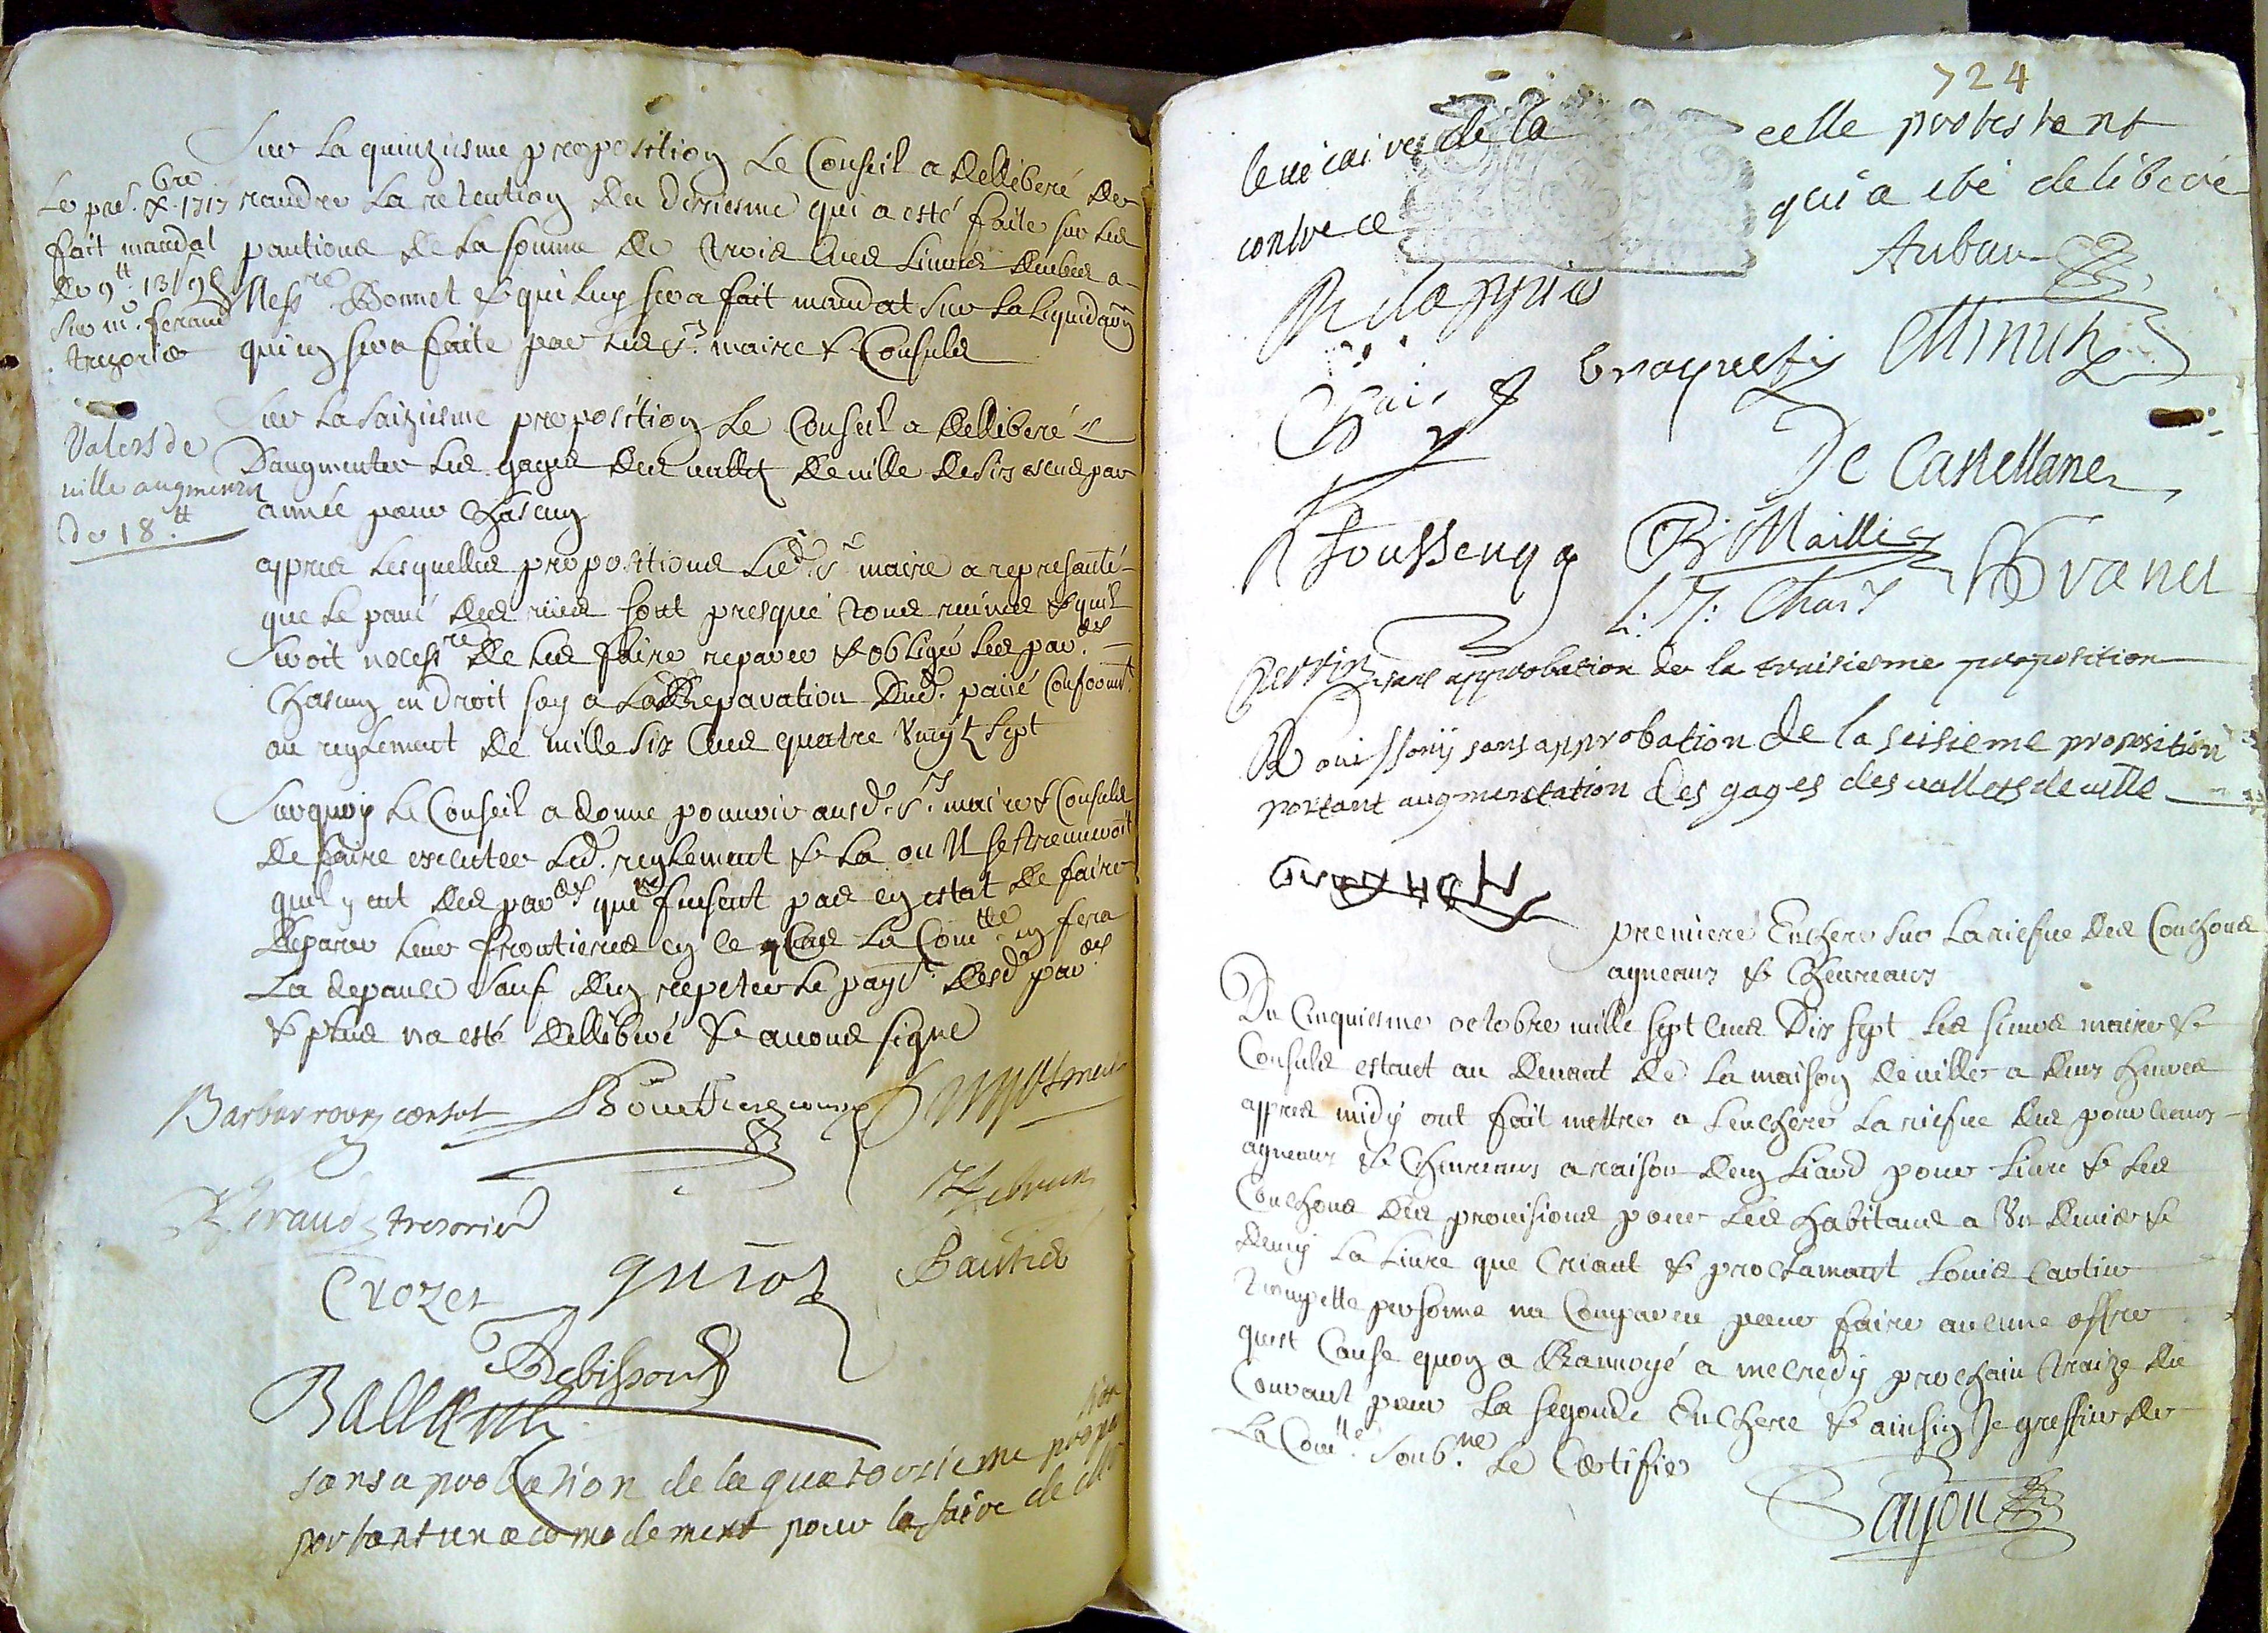 Sur la quinziesme proposition le Conseil a delliberé de
randre la retention du dixiesme qui a esté faite sur les
pantions de la somme de trois cens livres deubes a
Messre Bonnet & qui luy sera fait mandat sur la liquidaōn
qui en sera faite par les srs maire & Consuls
Le pre. xbre 1717
fait mandat
de 9tt 13s 9d
sur mr feraud
trezorier
Sur la saiziesme proposition le Conseil a delliberé
daugmenter les gages des valletz de ville de six escus par
année pour chascun
Valets de
ville augmentés
de 18tt
appres lesquelles propositions led. sr maire a representé
que le pavé des rües sont presque tous ruinés & quil
seroit necessre de les faire reparer & obliger les par.ers
chascun en droit soy a la Reparation dud. pavé conformt
au reglement de mille six cens quatre vingt sept
Surquoy le Conseil a donné pouvoir ausd. srs maire & Consuls
de faire executer led. reglement & la ou il se treuveroit
quil y eut des parers qui ne fusent pas en estat de faire
Reparer leur frontieres en ce cas la Comtté en fera
la depance sauf den repeter le paymt desd. parers
& plus na esté delliberé & avons signé
Barbarroux consol
feraud tresorier
Lebrun
Gautier
Crozet
guiol
Rebisson
Ballard
sans aprobation de la quatorsieme propotion
portant un acomodement pour la faire de
724
le vicaire de la
celle protestant
contre ce
qui a eté deliberé
Auban
Chais
braquety
Minuty
De Castellane
Toussencq
R. Maille
L. J. Chais
Perrin sans approbation de la traisiesme proposition
Bouissony sans approbation de la seisieme proposition
portant augmentation des gages des vallets de ville
premiere Enchere sur la riefve des Couchons
agneaux & chevreaux
Du Cinquiesme octobre mille sept cens dix sept les sieurs maire &
Consuls estant au devant de la maison de ville a deux heures
appres midy ont fait mettre a lenchere la riefve des pourceaux
agneaux & chevreaux a raison dun liard pour livre & les
Couchons des provisions pour les habitans a un denier &
demy la livre que criant & proclamant Louis Cartier
trompette personne na comparu pour faire aucune offre
quest cause quon a Ranvoyé a mecredy prochain traize du
Courant pour la segonde Enchere & ainsin Je greffier de
la Comté soubné le Certifie
Sayou